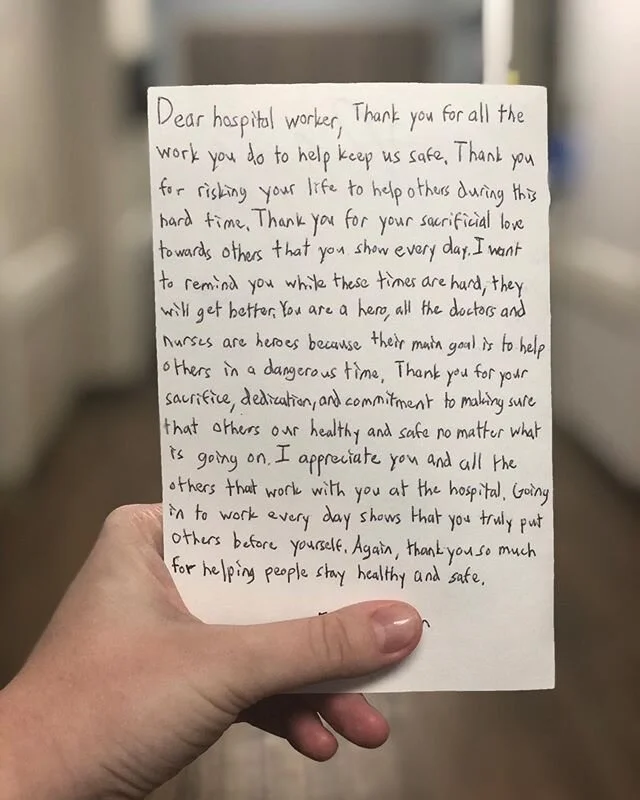 Dear hospital worker, Thank you for all the
work you do to help keep us safe. Thank you
for risking your life to help others during this
hard time. Thank you for your sacrificial love
towards others that you show every day. I want
to remind you while these times are hard, they
will get better. You are a hero, all the doctors and
nurses are heroes because their main goal is to help
others in a dangerous time. Thank you for your
sacrifice, dedication, and commitment to making sure
that others our healthy and safe no matter what
is going on. I appreciate you and all the
others that work with you at the hospital. Going
in to work every day shows that you truly put
others before yourself. Again, thank you so much
for helping people stay healthy and safe.